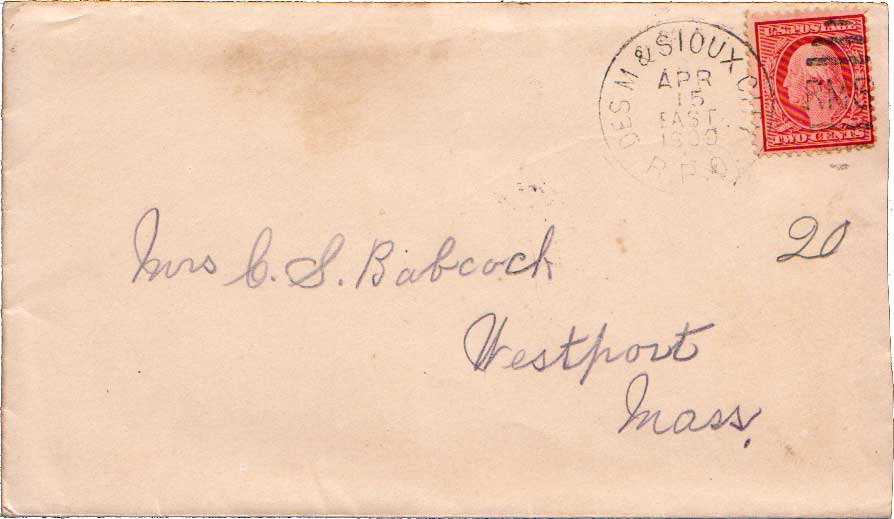 DES M & SIOUX CITY
APR
15
EAST
R.P.O.
U.S. POSTAGE
RMS
TWO CENTS
20
Mrs C. S. Babcock
Westport
Mass.